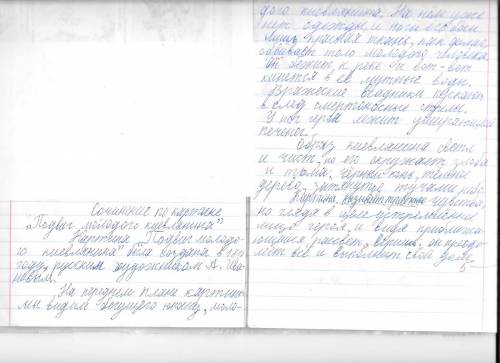 Сочинение по картине
„Подвиг молодого киевлянина"
Картина „Подвиг молодо-
го киевлянина" была создана в 1810
году, русским художником А. Ива-
новым.
На переднем плане картины
мы видим бегущего юношу, моло-
дого киевлянина. На нем уже
нет одежды и ноги его босы
Лишь красная ткань, как
обвивает тело молодого человека.
Он бежит к реке И вот-вот
кинется в её мутные воды.
Вражеские всадники пускают
в след смертоносные стрелы.
У ног героя лежит умирающий
печенег.
Образ киевлянина светл
и чист, но его окружает злоба
и тьма. Чёрный конь, темные
дерево, затянутое тучами
Картина чувства,
но глядя в целеустремлённое
лицо героя и видя приближа-
ющийся рассвет, веришь: он преодо-
леет всё и выполнит свой долг.
5